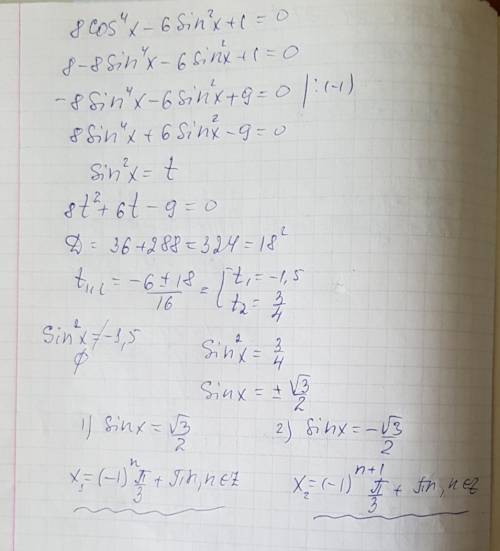 8cos⁴x - 6sin²x + 1 = 0
8 - 8sin⁴x - 6sin²x + 1 = 0
-8sin⁴x - 6sin²x + 9 = 0 | : (-1)
8sin⁴x + 6sin²x - 9 = 0
sin²x = t
8t² + 6t - 9 = 0
D = 36 + 288 = 324 = 18²
t₁,₂ = (-6 ± 18)/16 = [ t₁ = -1,5
t₂ = 3/4
sin²x ≠ -1,5 sin²x = 3/4
∅
sinx = ± √3/2
1) sinx = √3/2 2) sinx = -√3/2
x₁ = (-1)ⁿ π/3 + πn, n∈Z x₂ = (-1)ⁿ⁺¹ π/3 + πn, n∈Z